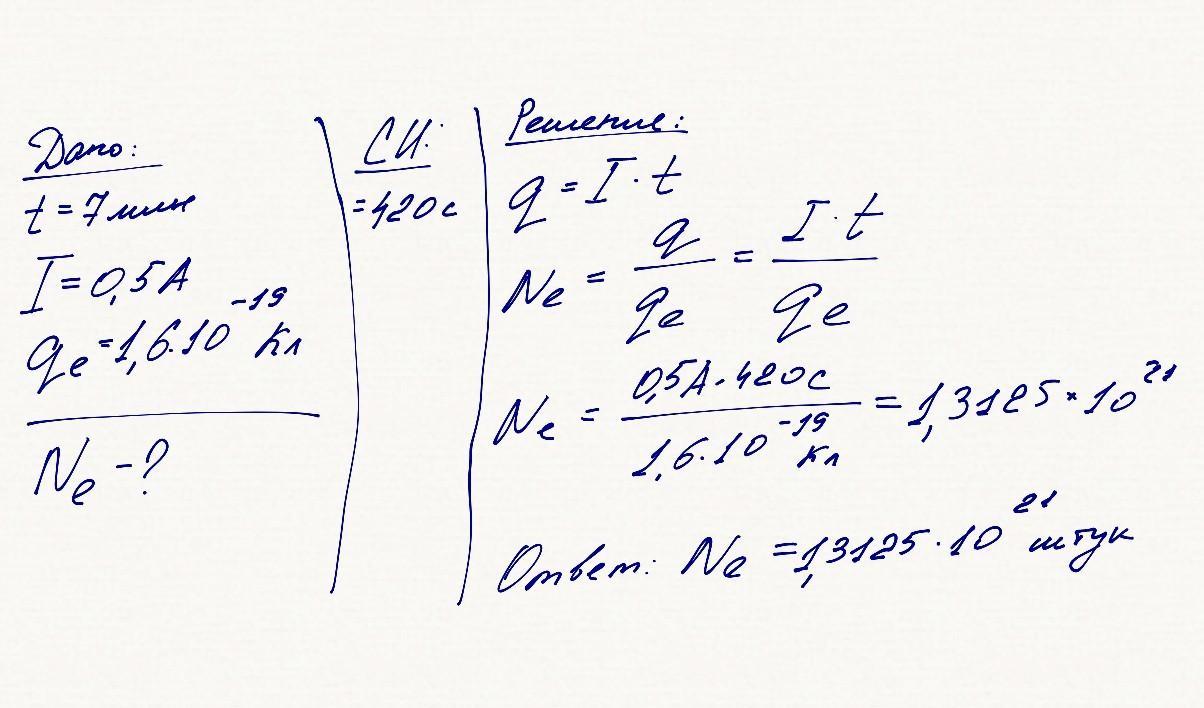 Дано:
t = 7 мин
I = 0,5 А
qₑ = 1,6·10⁻¹⁹ Кл
Nₑ - ?
СИ:
= 420 с
Решение:
q = I · t
Nₑ = q / qₑ = I · t / qₑ
Nₑ = 0,5А · 420с / 1,6·10⁻¹⁹ Кл = 1,3125 * 10²¹
Ответ: Nₑ = 1,3125 · 10²¹ штук